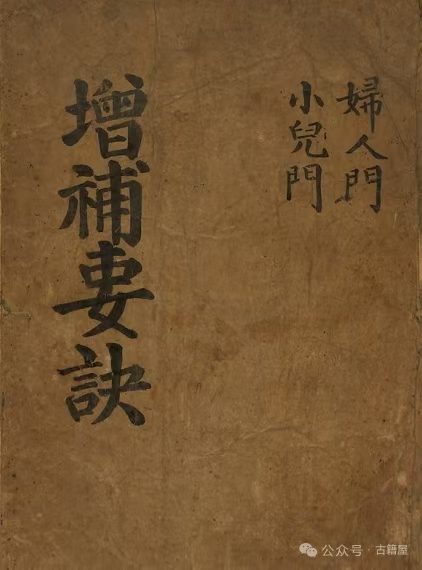 婦人門
小兒門
增補要訣
公众号 · 古籍屋